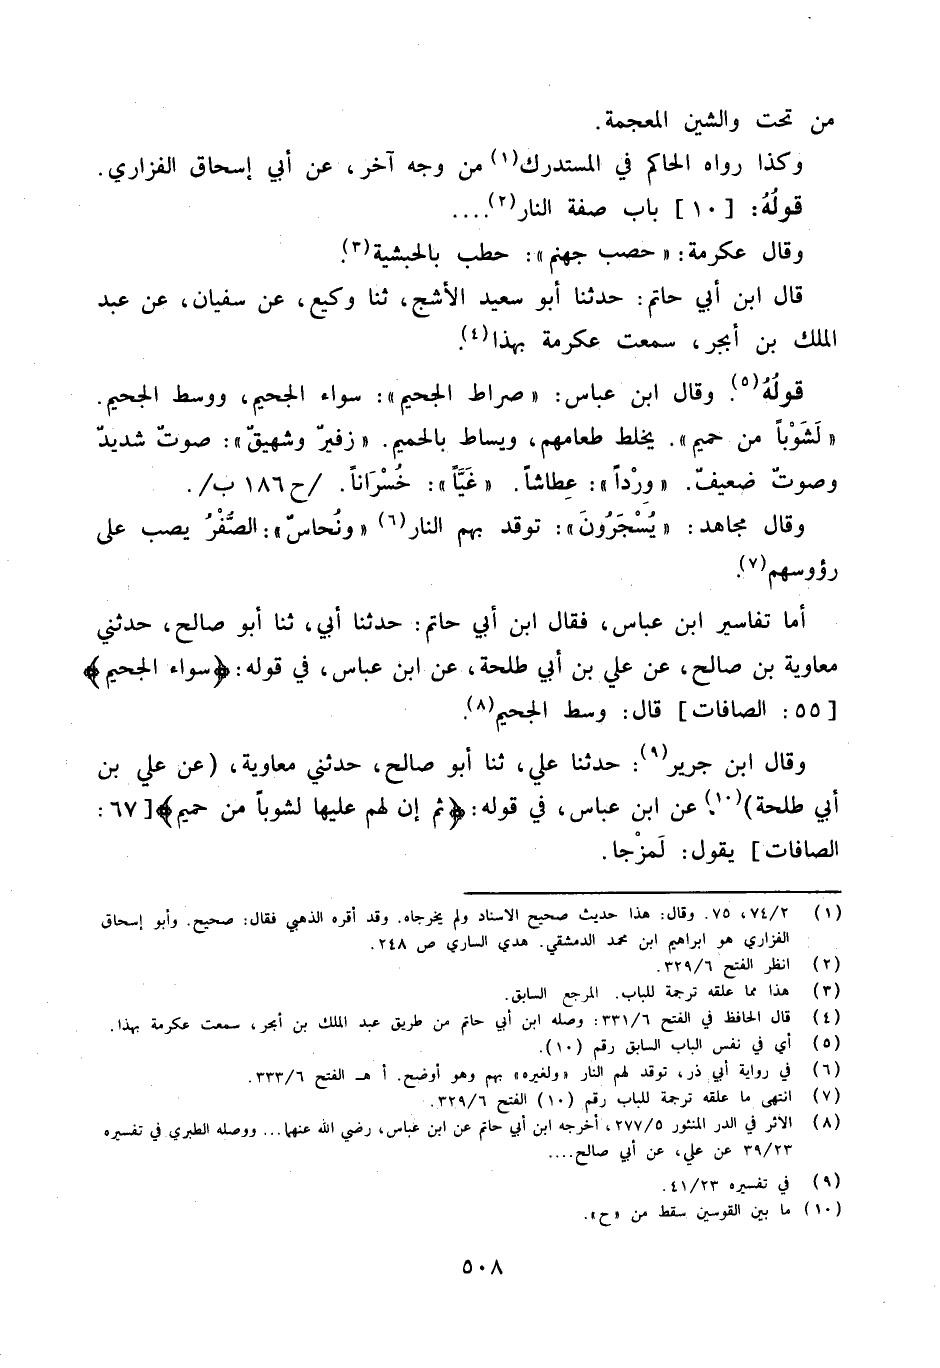 من تحت والشين المعجمة.
وكذا رواه الحاكم في المستدرك(١) من وجه آخر، عن أبي إسحاق الفزاري.
قولُهُ: [١٠] باب صفة النار(٢)....
وقال عكرمة: «حصب جهنم»: حطب بالحبشية(٣).
قال ابن أبي حاتم: حدثنا أبو سعيد الأشج، ثنا وكيع، عن سفيان، عن عبد
الملك بن أبجر، سمعت عكرمة بهذا(٤).
قولُهُ(٥). وقال ابن عباس: «صراط الجحيم»: سواء الجحيم، ووسط الجحيم.
«لَشَوْباً من حميم». يخلط طعامهم، ويساط بالحميم. «زفيرٌ وشهيقٌ»: صوتٌ شديدٌ
وصوتٌ ضعيفٌ. «ورْداً»: عِطاشاً. «غَيَّاً»: خُسْرَاناً. /ح ١٨٦ ب/.
وقال مجاهد: «يُسْجَرُونَ»: توقد بهم النار(٦) «ونُحاسٌ»: الصُّفْرُ يصب على
رؤوسهم(٧).
أما تفاسير ابن عباس، فقال ابن أبي حاتم: حدثنا أبي، ثنا أبو صالح، حدثني
معاوية بن صالح، عن علي بن أبي طلحة، عن ابن عباس، في قوله: ﴿سواء الجحيم﴾
[٥٥: الصافات] قال: وسط الجحيم(٨).
وقال ابن جرير(٩): حدثنا علي، ثنا أبو صالح، حدثني معاوية، (عن علي بن
أبي طلحة)(١٠). عن ابن عباس، في قوله: ﴿ثم إن لهم عليها لشوباً من حميم﴾ [٦٧:
الصافات] يقول: لَمزْجا.
(١) ٧٤/٢، ٧٥. وقال: هذا حديث صحيح الاسناد ولم يخرجاه. وقد أقره الذهبي فقال: صحيح. وأبو إسحاق
الفزاري هو ابراهيم ابن محمد الدمشقي. هدي الساري ص ٢٤٨.
(٢) انظر الفتح ٣٢٩/٦.
(٣) هذا مما علقه ترجمة للباب. المرجع السابق.
(٤) قال الحافظ في الفتح ٣٣١/٦: وصله ابن أبي حاتم من طريق عبد الملك بن أبجر، سمعت عكرمة بهذا.
(٥) أي في نفس الباب السابق رقم (١٠).
(٦) في رواية أبي ذر، توقد لهم النار «ولغيره» بهم وهو أوضح. أ هـ الفتح ٣٣٣/٦.
(٧) انتهى ما علقه ترجمة للباب رقم (١٠) الفتح ٣٢٩/٦.
(٨) الاثر في الدر المنثور ٢٧٧/٥، أخرجه ابن أبي حاتم عن ابن عباس، رضي الله عنهما... ووصله الطبري في تفسيره
٣٩/٢٣ عن علي، عن أبي صالح....
(٩) في تفسيره ٤١/٢٣.
(١٠) ما بين القوسين سقط من «ح».
٥٠٨